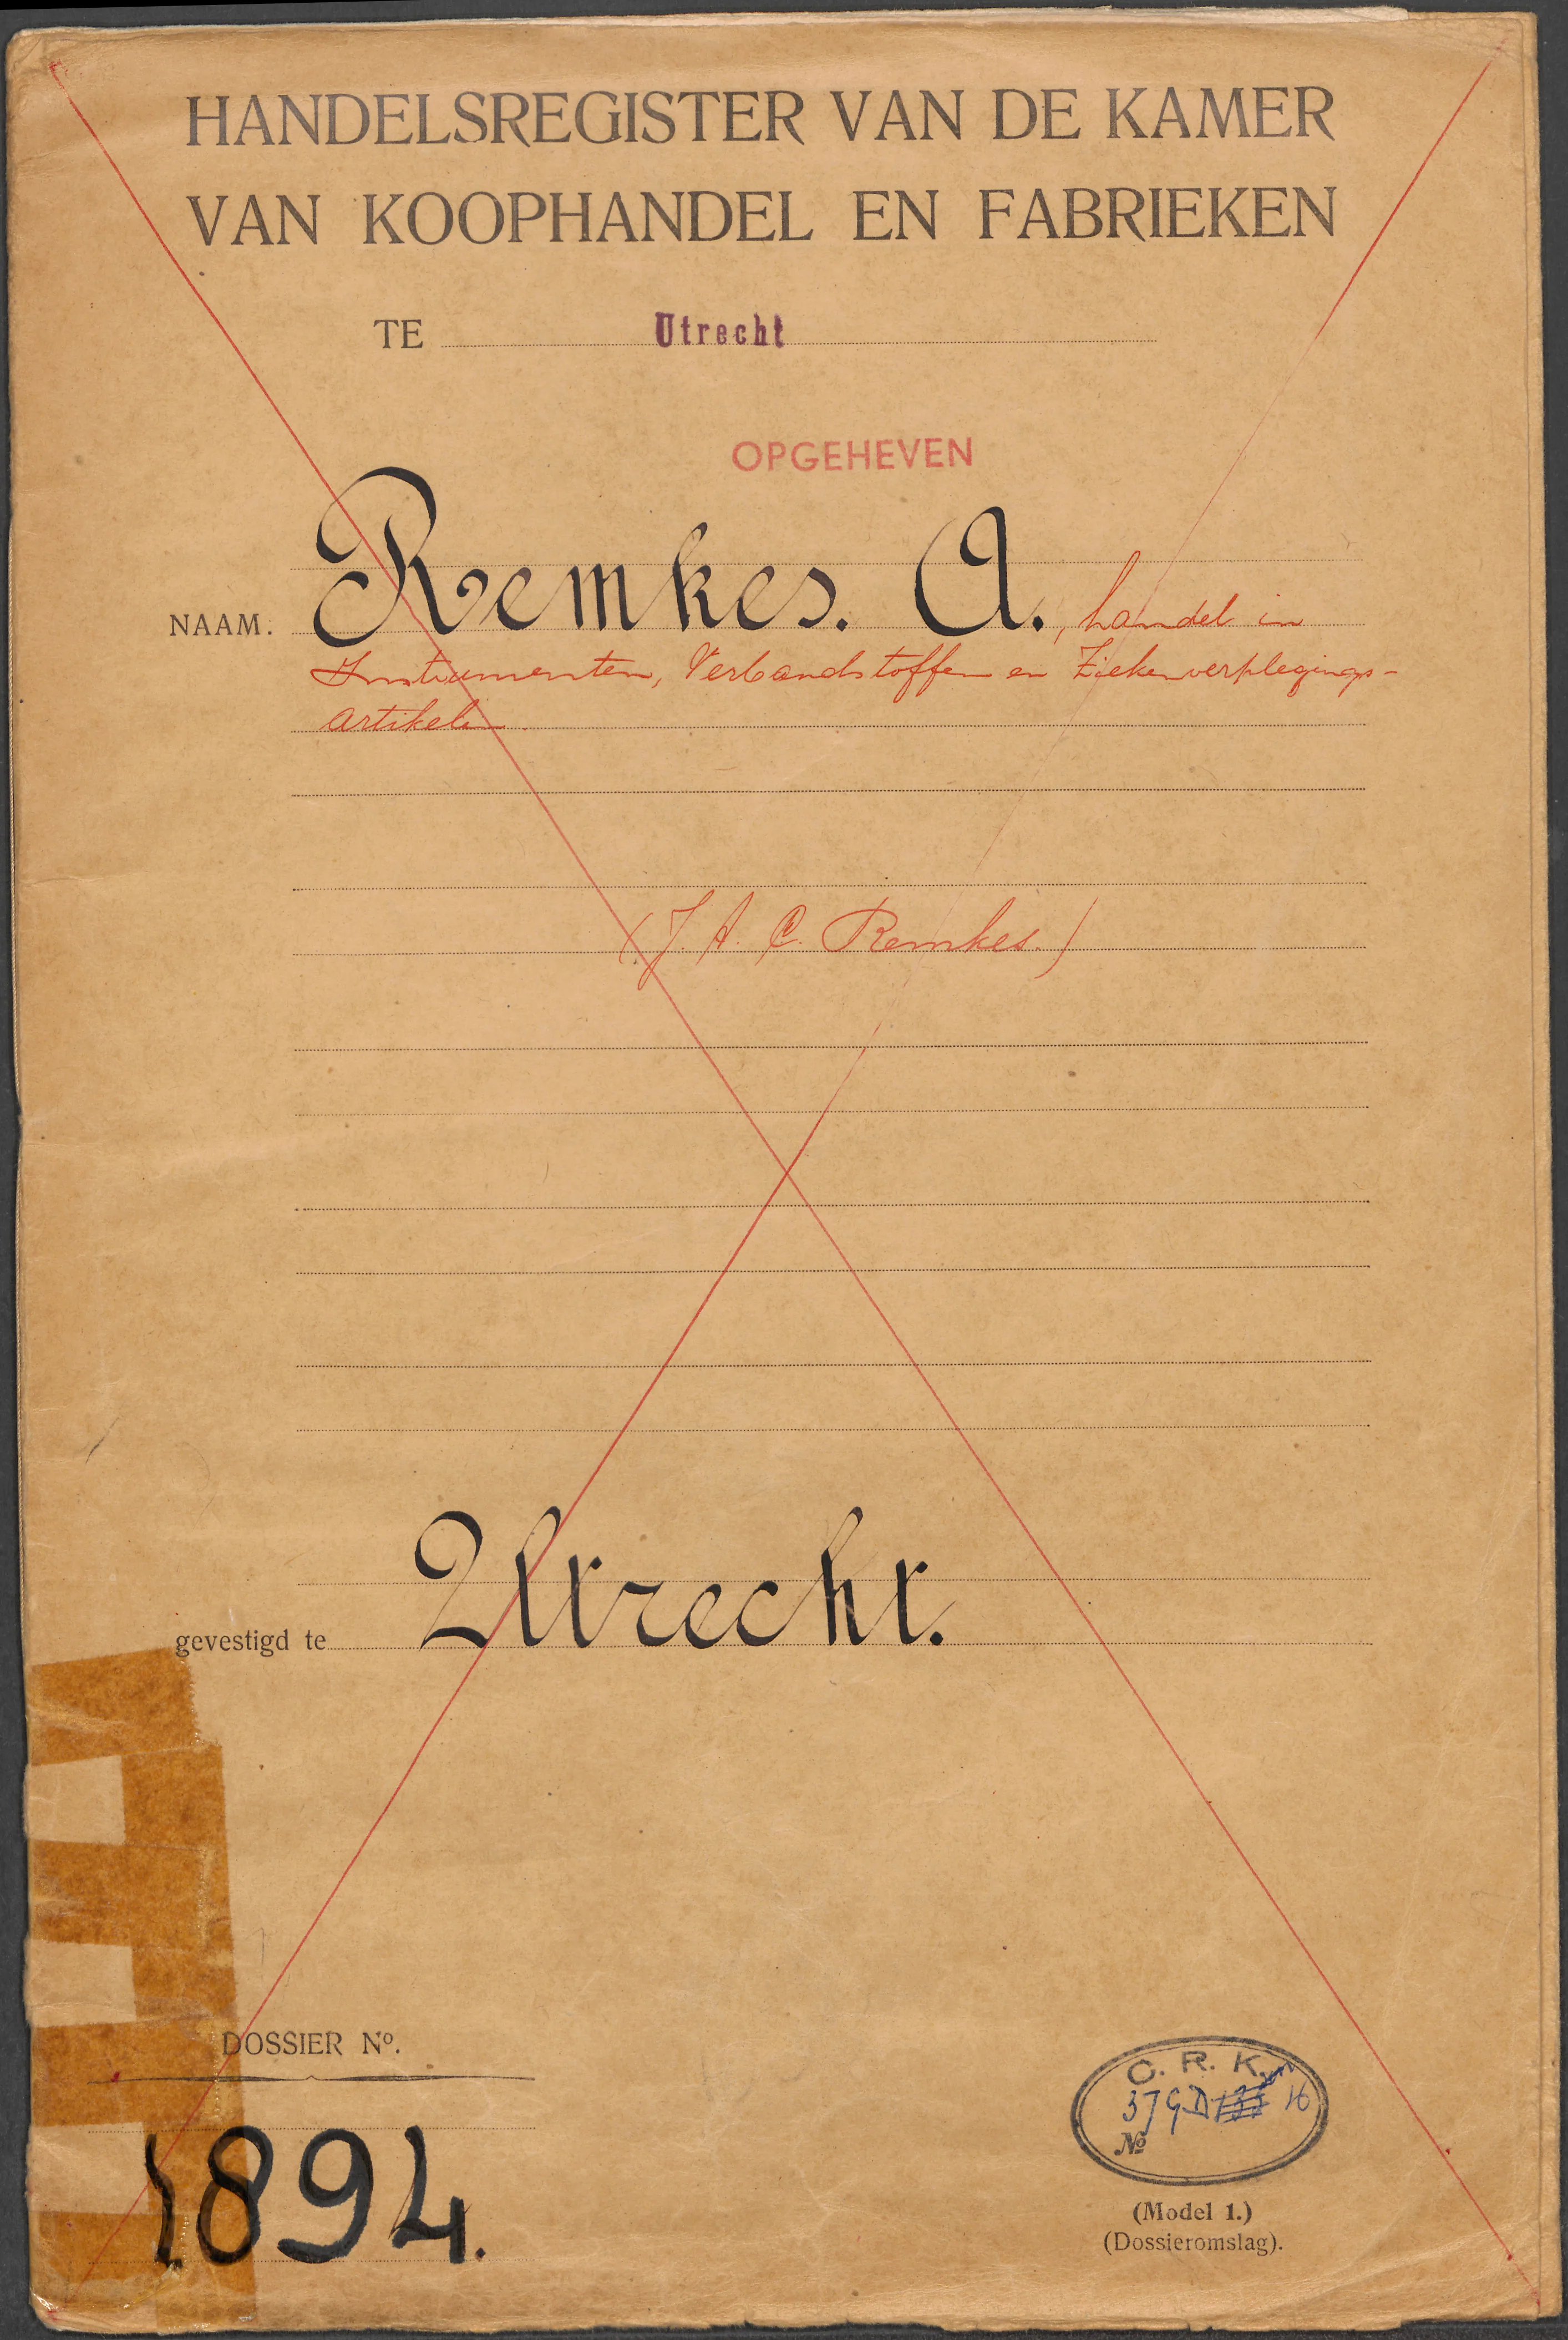 HANDELSREGISTER VAN DE KAMER
VAN KOOPHANDEL EN FABRIEKEN
TE Utrecht
OPGEHEVEN
NAAM. Remkes. A., handel in
Instrumenten, Verbandstoffen en Ziekenverplegings-
artikelen.
(J. A. C. Remkes.)
gevestigd te Utrecht.
DOSSIER No.
1894.
C. R. K.
37 G.D 16
No
(Model 1.)
(Dossieromslag).